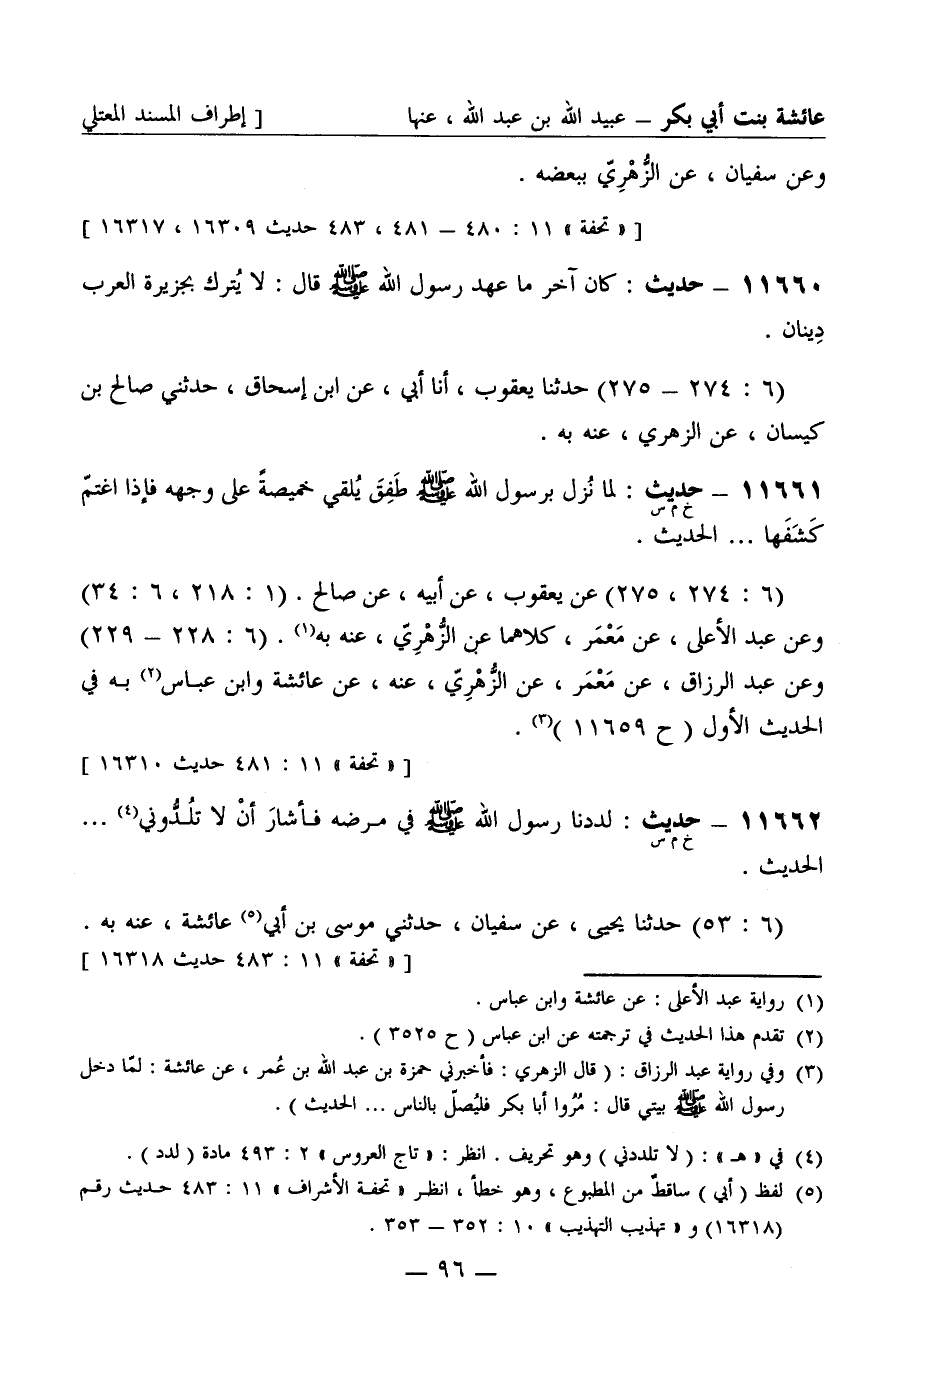 عائشة بنت أبي بكر – عبيد الله بن عبد الله ، عنها [ إطراف المسند المعتلي
وعن سفيان ، عن الزُّهْرِيّ ببعضه .
[ « تحفة » ١١ : ٤٨٠ – ٤٨١ ، ٤٨٣ حديث ١٦٣٠٩ ، ١٦٣١٧ ]
١١٦٦٠ – حديث : كان آخر ما عهد رسول الله ﷺ قال : لا يُترك بجزيرة العرب
دِينان .
(٦ : ٢٧٤ – ٢٧٥) حدثنا يعقوب ، أنا أبي ، عن ابن إسحاق ، حدثني صالح بن
كيسان ، عن الزهري ، عنه به .
١١٦٦١ – حديث : لما نُزل برسول الله ﷺ طَفِقَ يُلقي خميصةً على وجهه فإذا اغتمّ
خ م س
كَشَفَها ... الحديث .
(٦ : ٢٧٤ ، ٢٧٥) عن يعقوب ، عن أبيه ، عن صالح . (١ : ٢١٨ ، ٦ : ٣٤)
وعن عبد الأعلى ، عن مَعْمَر ، كلاهما عن الزُّهْرِيّ ، عنه به(١) . (٦ : ٢٢٨ – ٢٢٩)
وعن عبد الرزاق ، عن مَعْمَر ، عن الزُّهْرِيّ ، عنه ، عن عائشة وابن عباس(٢) به في
الحديث الأول ( ح ١١٦٥٩ )(٣) .
[ « تحفة » ١١ : ٤٨١ حديث ١٦٣١٠ ]
١١٦٦٢ – حديث : لددنا رسول الله ﷺ في مرضه فأشارَ أنْ لا تلُدُّوني(٤) ...
خ م س
الحديث .
(٦ : ٥٣) حدثنا يحيى ، عن سفيان ، حدثني موسى بن أبي(٥) عائشة ، عنه به .
[ « تحفة » ١١ : ٤٨٣ حديث ١٦٣١٨ ]
(١) رواية عبد الأعلى : عن عائشة وابن عباس .
(٢) تقدم هذا الحديث في ترجمته عن ابن عباس ( ح ٣٥٢٥ ) .
(٣) وفي رواية عبد الرزاق : ( قال الزهري : فأخبرني حمزة بن عبد الله بن عُمر ، عن عائشة : لمّا دخل
رسول الله ﷺ بيتي قال : مُرُوا أبا بكر فليُصلّ بالناس ... الحديث ) .
(٤) في « هـ » : ( لا تلددني ) وهو تحريف . انظر : « تاج العروس » ٢ : ٤٩٣ مادة ( لدد ) .
(٥) لفظ ( أبي ) ساقطٌ من المطبوع ، وهو خطأ ، انظر « تحفة الأشراف » ١١ : ٤٨٣ حديث رقم
(١٦٣١٨) و « تهذيب التهذيب » ١٠ : ٣٥٢ – ٣٥٣ .
– ٩٦ –